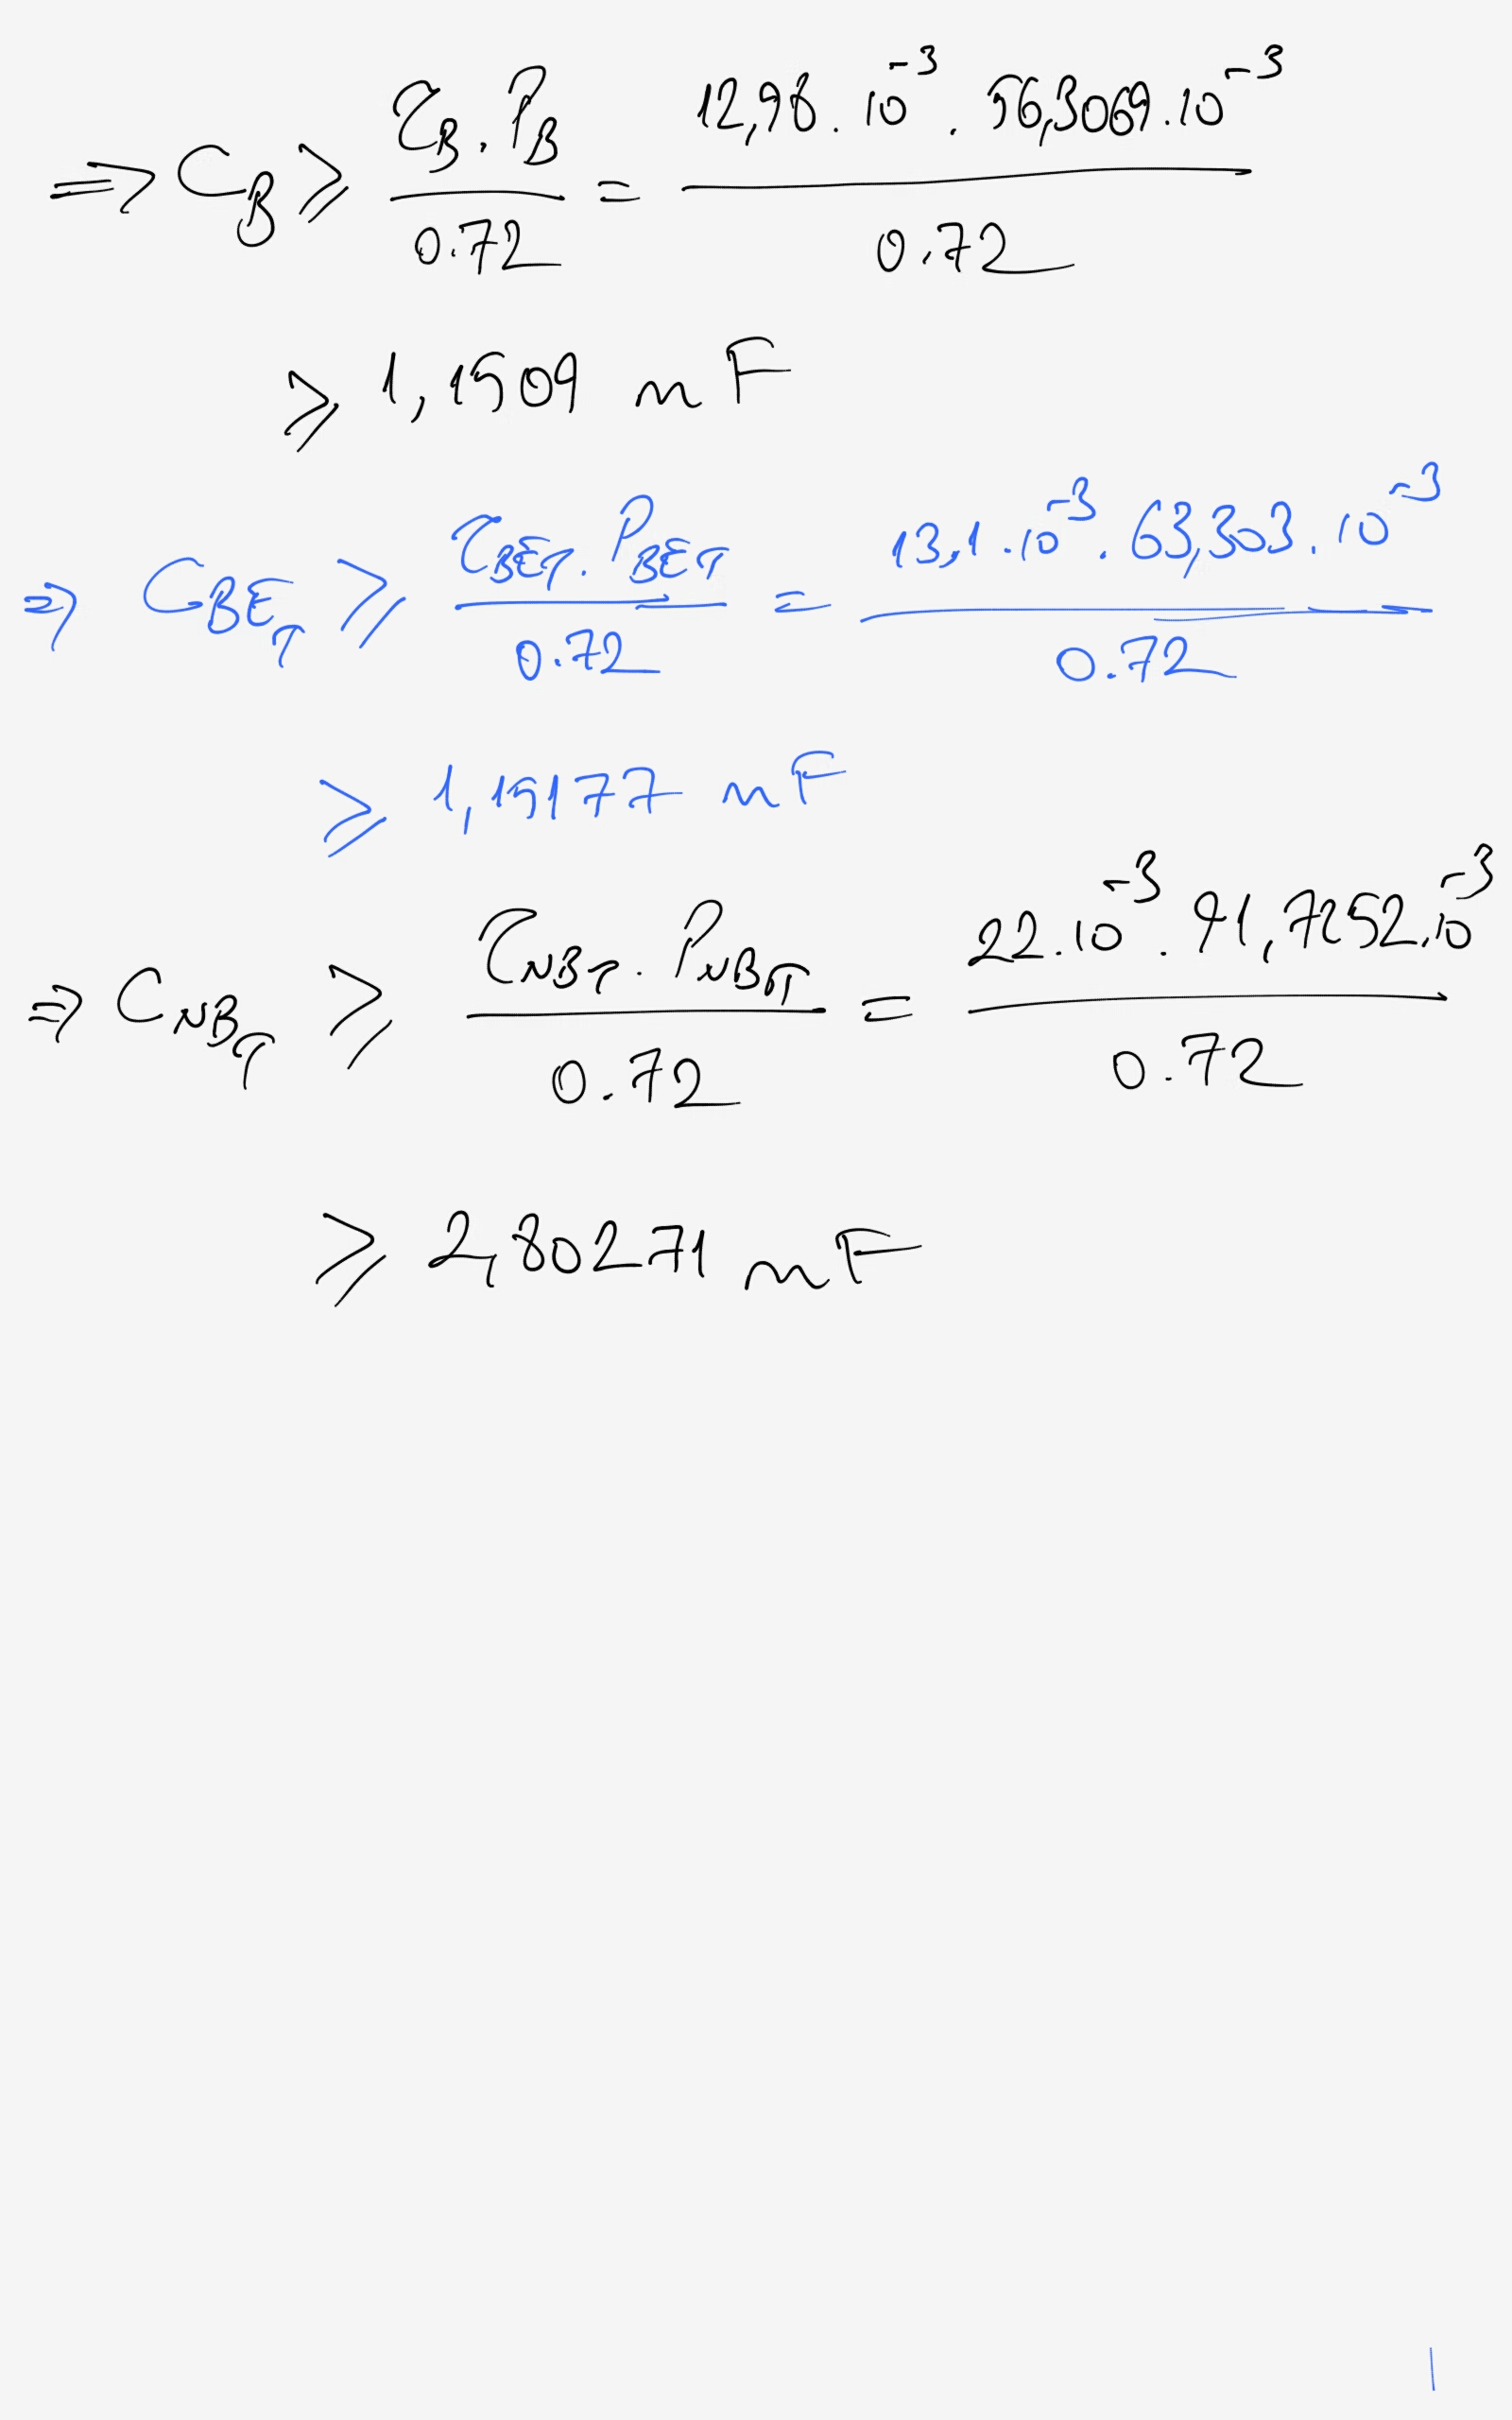 => C_B ≥ (τ_B . P_B) / 0.72 = (12,98 . 10^-3 . 56,3069 . 10^-3) / 0.72
≥ 1,1509 mF
=> C_BET ≥ (τ_BET . P_BET) / 0.72 = (13,1 . 10^-3 . 63,303 . 10^-3) / 0.72
≥ 1,15177 mF
=> C_NBT ≥ (τ_NBT . P_NBT) / 0.72 = (22 . 10^-3 . 91,7252 . 10^-3) / 0.72
≥ 2,80271 mF